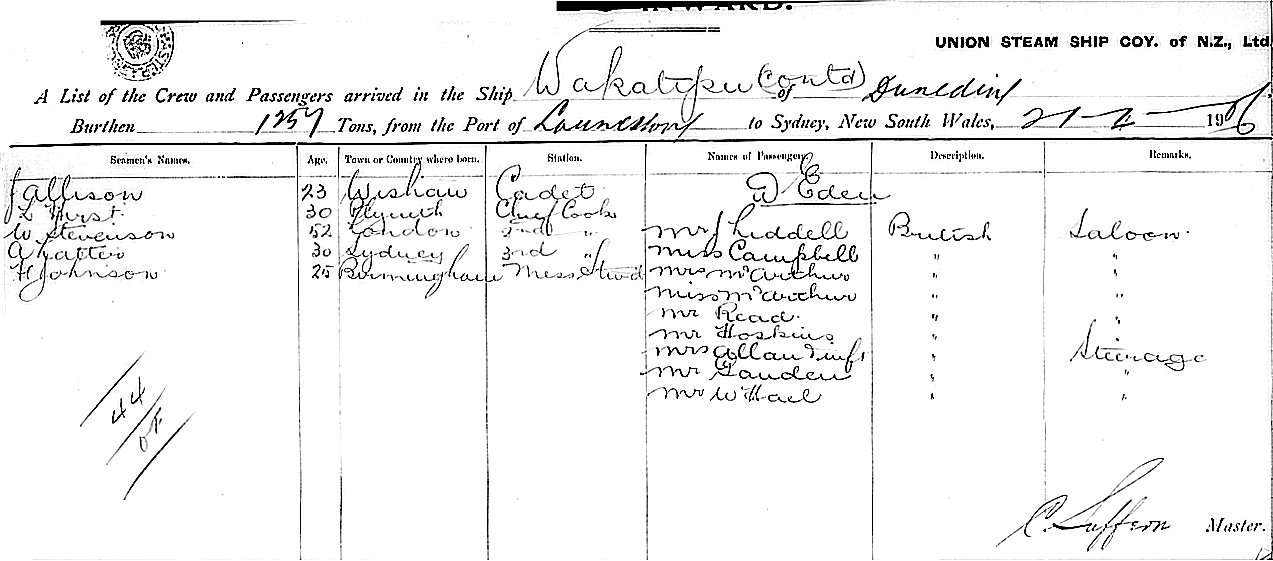 INWARD.
UNION STEAM SHIP COY. of N.Z., Ltd
A List of the Crew and Passengers arrived in the Ship Wakatipu (Contd) of Dunedin
Burthen 1257 Tons, from the Port of Launceston to Sydney, New South Wales, 21-2- 1906
Seamen's Names. Age. Town or Country where born. Station. Names of Passengers Description. Remarks.
J Allison 23 Wishaw Cadet D Eden
L Hurst 30 Plymth Chief Cook
W. Stevenson 52 London 2nd " Mr J Liddell British Saloon
A 30 Sydney 3rd " Miss Campbell " "
H Johnson 25 Birmingham Mess Stwd Mrs McArthur "
Miss McArthur " "
Mr Read " "
Mr Hoskins "
Mrs Allan & inft " Steerage
Mr " "
Mr W Hall " "
44
C. Suffern Master.